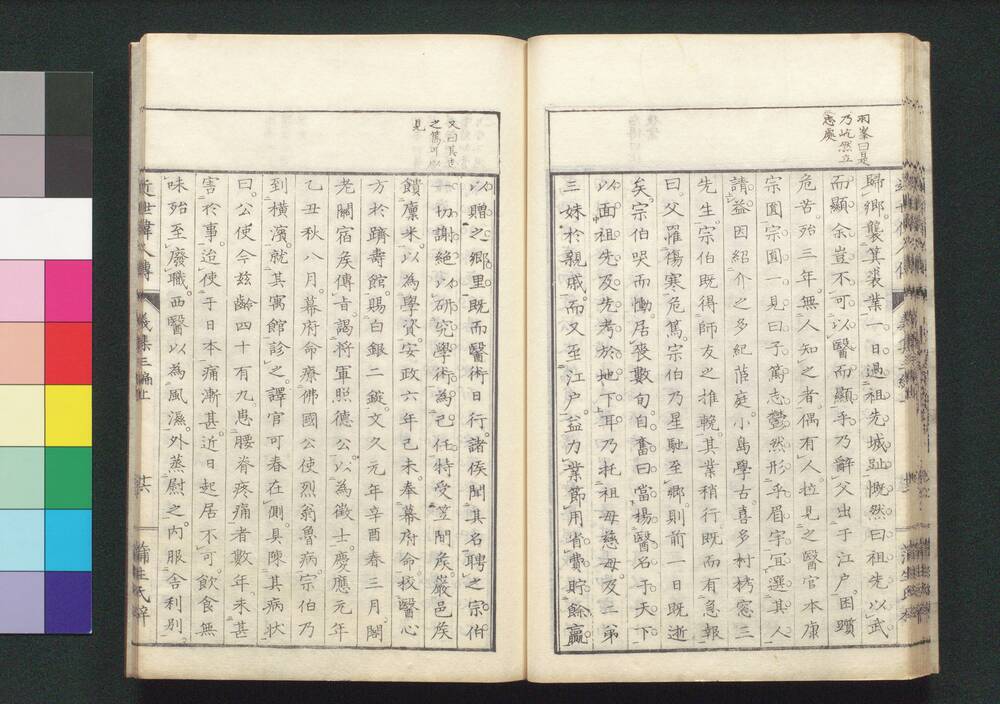 羽峯曰是
乃屹然立
志處
歸鄉襲箕裘業一日過祖先城趾慨然曰祖先以武
而顯余豈不可以醫而顯乎乃辭父出于江戶困躓
危苦殆三年無人知之者偶有人拉見之醫官本康
宗圓宗圓一見曰子篤志鬱然形乎眉宇宜選其人
請益因紹介之多紀茝庭小島學古喜多村栲窓三
先生宗伯既得師友之推輓其業稍行既而有急報
曰父罹傷寒危篤宗伯乃星馳至鄉則前一日既逝
矣宗伯哭而慟居喪數旬自奮曰當揚醫名于天下
以面祖先及先考於地下耳乃托祖母慈母及二弟
三妹於親戚而又至江戶益力業節用省費貯餘贏
又曰其志
之篤可以
見
以贈之鄉里既而醫術日行諸侯聞其名聘之宗伯
一切謝絕以研究學術為己任特受笠間矦巖邑矦
饋廩米以為學資安政六年己未奉幕府命校醫心
方於躋壽館賜白銀二錠文久元年辛酉春三月關
老關宿矦傳旨謁將軍照德公以為徵士慶應元年
乙丑秋八月幕府命療佛國公使烈翁魯病宗伯乃
到橫濱就其寓館診之譯官可春在側具陳其病狀
曰公使今茲齡四十有九患腰脊疼痛者數年未甚
害於事迨使于日本痛漸甚近日起居不可飲食無
味殆至廢職西醫以為風濕外蒸尉之內服舍利別
近世偉人傳
義集三編上
蒲生氏梓